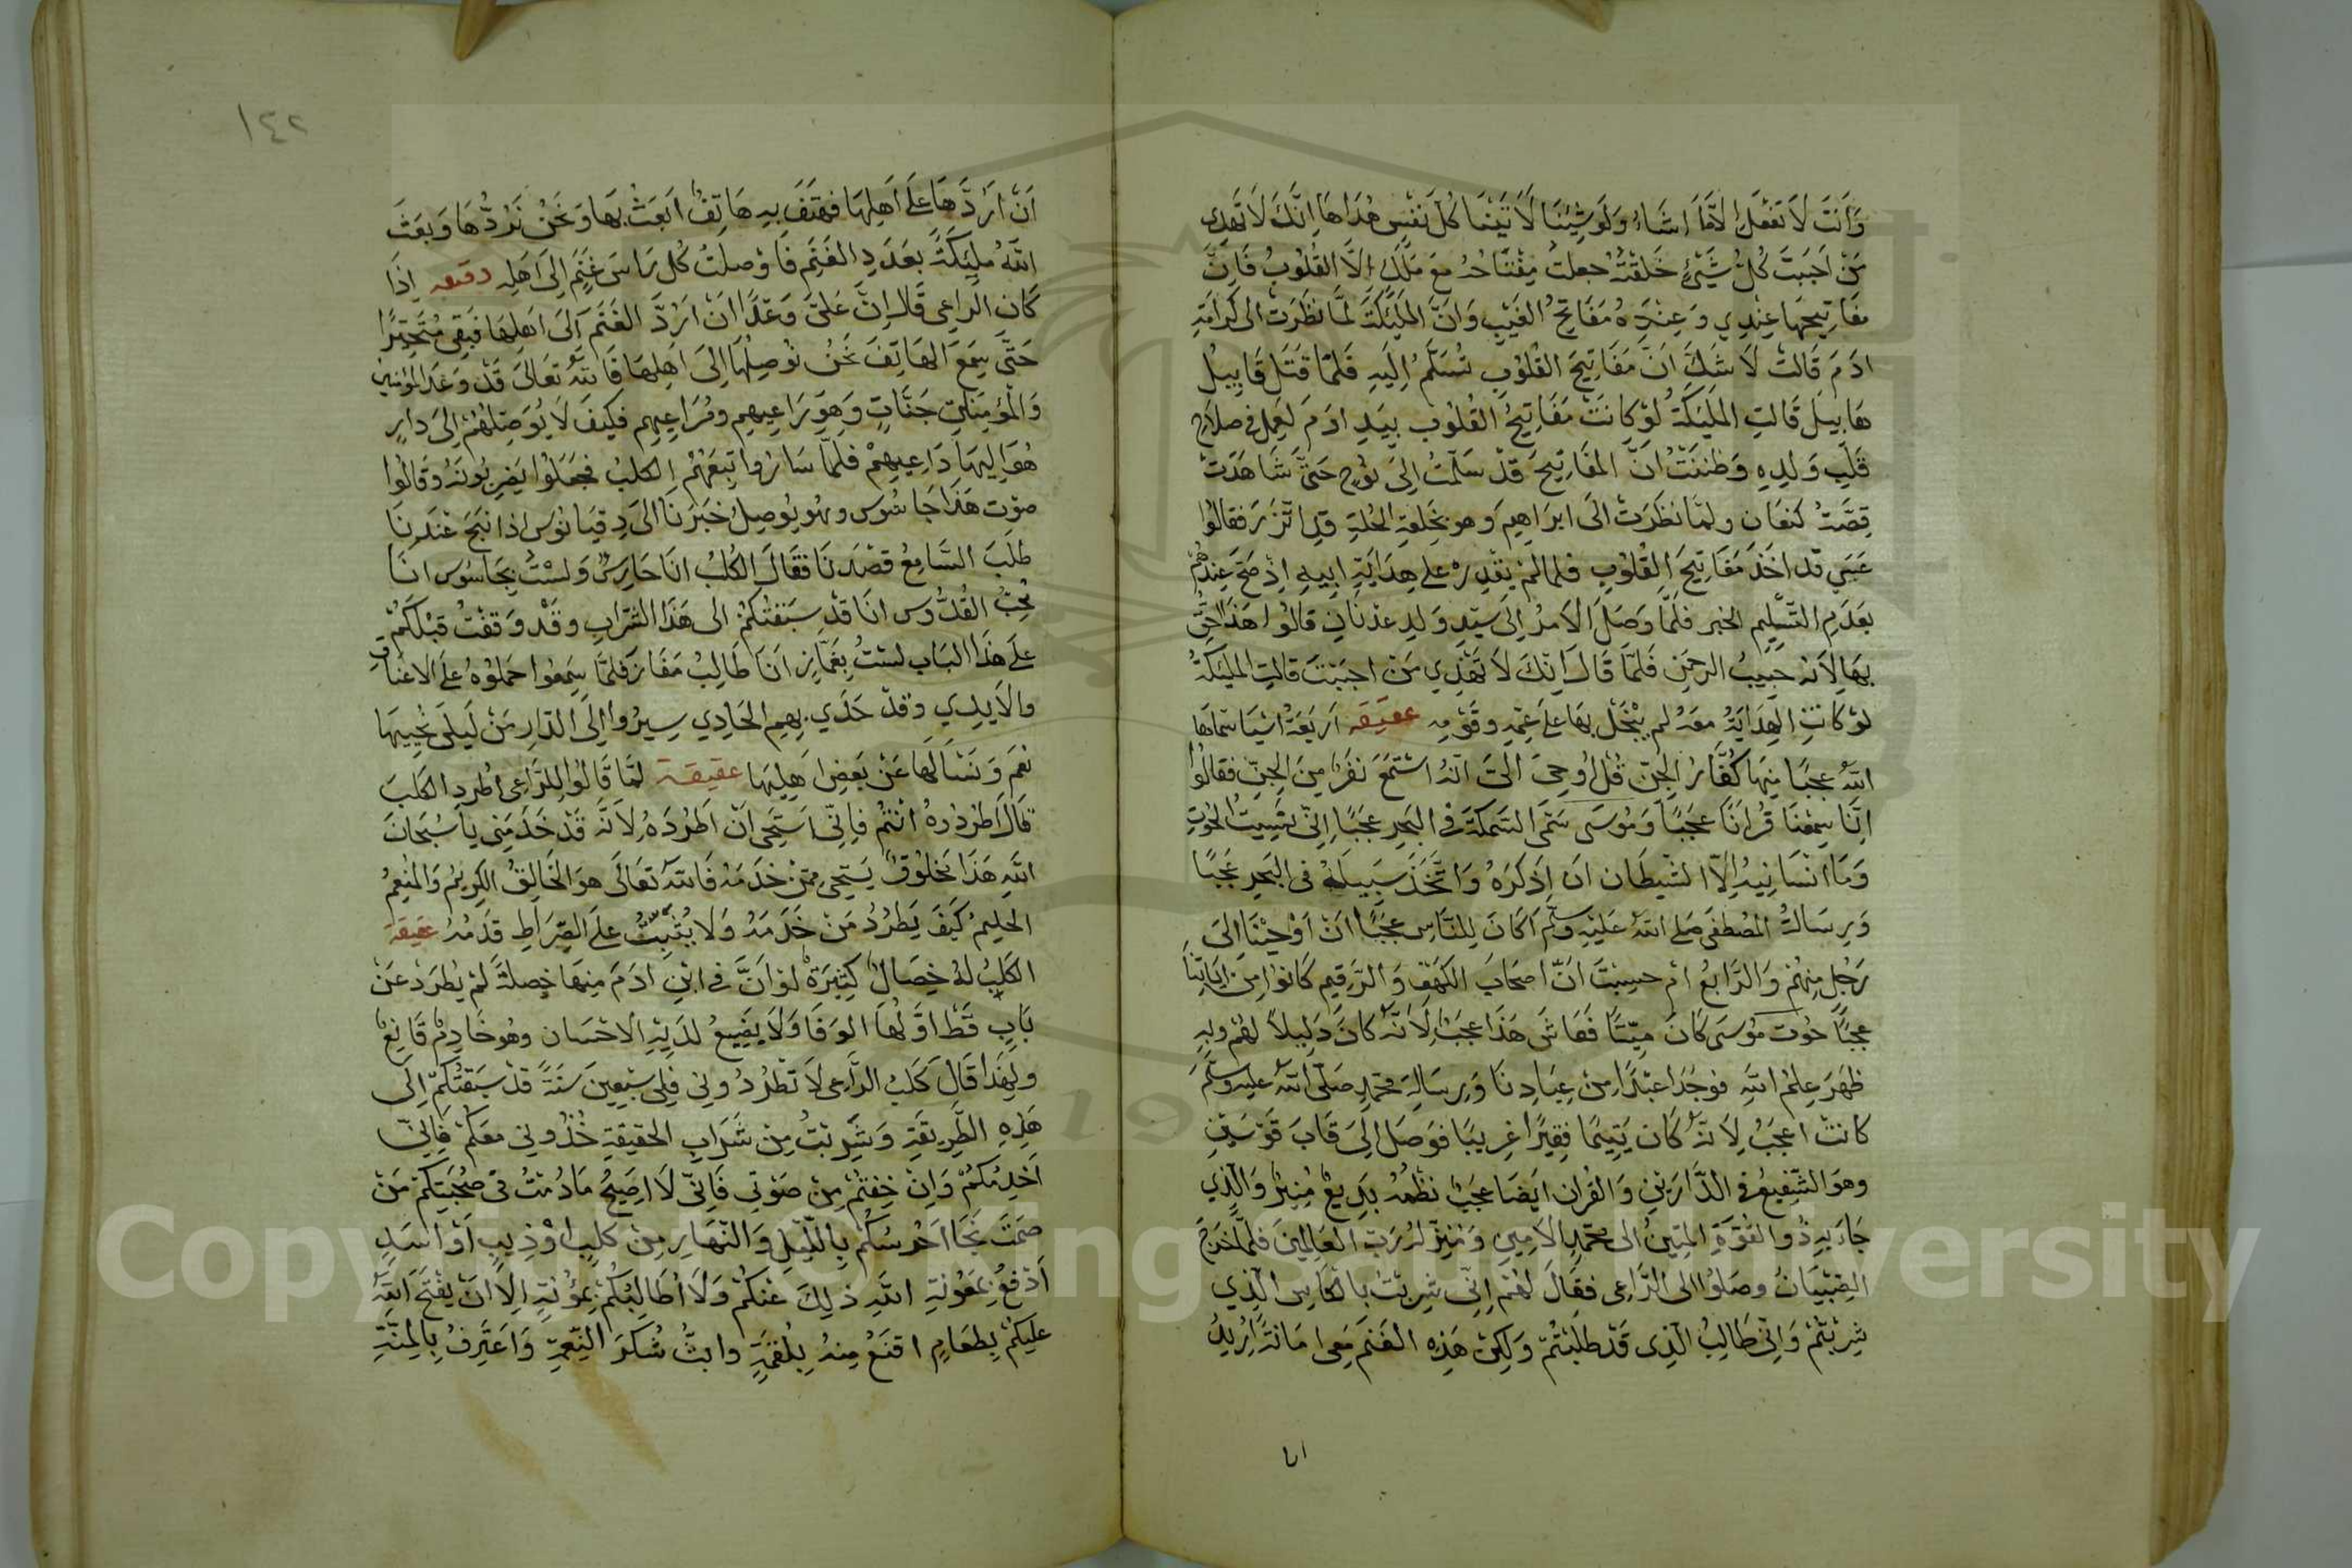 وَاَنتَ لَا تفعَل اِلَّا مَا اشَاءُ وَلَو شِئنَا لَاٰتَينَا كُلّ نَفْس هُدَاهَا اِنَّكَ لَا تَهدِي
مَنْ اَحبَبتَ كُلُّ شَيْئٍ خَلَقْتُهُ جعلتُ مِفْتَاحُهُ مَعَ مَلَكٍ اِلَّا القُلُوبُ فَاِنَّ
مفَاتِيحَهَا عِنْدِي وَعِنْدَهُ مَفَاتِحُ الغَيْبِ وَانَّ المَلَيْكَةَ لَمَّا نَظَرَتْ الى كَرَامَةِ
ادَمَ قَالتْ لَا شَكَّ انَّ مَفَاتِيحَ القُلُوبِ تُسَلَّمُ اِلَيهِ فَلمَّا قَتَل قَابِيلُ
هَابِيلَ قَالتِ المَلَيَكَةُ لَوْ كَانَتْ مَفَاتِيحُ القُلُوب بِيَدِ ادَمَ لَعَمِلَ في صلَاحِ
قَلْبِ وَلَدِهِ وَظنَنَتْ انَّ المفَاتِيحَ قَدْ سَلمتْ اِلىَ نُوحٍ حَتَّى شَاهَدَتْ
قِصَّتُ كنعَان ولمَّا نظَرَتْ الَى ابرَاهِيمَ وهو بخِلعَةِ الخُلَّةِ قد اتزَرَ فقالُوا
عَسَى قد اخَذَ مَفَاتِيحَ القُلوُبِ فلما لمْ يقْدِرْ على هِدَايَةِ ابِيهِ اِذْ صَحَّ عِندَهُمْ
بعَدَمِ التَّسْلِيمِ الخبر فلَمَّا وَصَلَ الَامرُ اِلَى سَيّدِ وَلدِ عدْنَانِ قَالُوا هَذَا احَقُّ
بهَا لِاَنهُ حَبِيبُ الرحمَنِ فَلمَّا قَالَ اِنَّكَ لَا تَهْدِي مَنْ احبَبتَ قالتِ المليَكَةُ
لوْ كَانتِ الهِدَايَةُ معَهُ لم يبْخَل بهَا علَى عَمّهِ وقَوْمِهِ عقيقه اَربَعَةُ اشيَا سَمَّاهَا
اللهُ عجبًا مِنهَا كُفَّارُ الجِنّ قُلْ اُوحِيَ اِلَيَّ انّهُ اسْتَمَعَ نَفَرٌ مِنَ الجِنّ فقَالُوا
اِنَّا سَمِعْنَا قُرْانًا عجَبًا وَمُوسَى سَمَّى السَمكَةَ في البَحرِ عجَبًا اِنّي نَسِيتُ الحُوتَ
وَمَا انْسَانِيهُ اِلَّا الشّيطَان انَ اذكُرَهُ وَاتَّخَذَ سَبِيلَهُ في البَحرِ عجَبًا
وَرِسَالةُ المُصْطفَى صلى اللهُ عَلَيْهِ وسَلّمَ اَكَانَ لِلنَّاسِ عجَبًا انْ اَوْحَيْنَا الَىَ
رَجُلٍ مِنْهُمْ وَالرَّابِعُ امْ حسِبْتَ انَّ اصحَابَ الكَهْفِ وَالرَّقِيمِ كَانُوا مِنْ اٰيَاتِنَا
عجَبًا حُوت مُوسَى كَانَ مَيّتًا فَعَاشَ هَذَا عجَبٌ لِاَنَّهُ كَانَ دَلِيلًا لهُمْ وبِهِ
ظَهَرَ عِلمُ اللهِ فوَجَدَا عبْدًا مِنْ عِبَادِنَا وَرِسَالةِ محَمّدٍ صَلّى اللهُ عليهِ وسَلّمَ
كانتْ اعجَبُ لِاَنهُ كَان يَتِيمًا فقِيرًا غرِيبًا فوَصَلَ اِلَى قَابَ قَوْسَينِ
وهوَ الشّفِيعُ فِ الدَّارَينِ وَالقُرانِ ايضًا عجَبٌ نظْمُهُ بَدِيعٌ مُنِيرٌ وَالّذِي
جَاءَ بِهِ ذُو القُوَّةِ المَتِينُ الى محَمّدٍ الَامِينِ وَمُنَزّلهُ رَبّ العَالمِينَ فلَمَّا خرَجَ
الصِّبْيَانُ وصَلُوا الى الرَّاعِى فقَالَ لهُمْ اِنّي شرِبْتُ بالكَاسِ الّذِي
شرِبْتُمْ وَاِنّي طَالِبُ الّذِى قَدْ طلَبْتُمْ وَلَكِنْ هَذِهِ الغَنَم مَعِى امَانَةٌ اُرِيدُ
ان
١٤٢
اَنْ اَرُدَّهَا عَلَى اَهلِهَا فهَتَفَ بِهِ هَاتِفٌ ابعَثْ بهَا وَنحَنُ نَرُدُّهَا وَبعَثَ
اللهُ مَلَيكَةً بعَدَدِ الغَنَمِ فَاوْصلتْ كُل رَاسَ غَنَمٍ اِلىَ اهَلِهِ دقيقه اِذَا
كَان الرَاعِى قَالَ اِنَّ عَلىَّ وَعْدًا اَنْ ارُدَّ الغَنَمَ اَلىَ اهلِهَا فَبَقِى مُتَحَيّرًا
حَتَّى سَمِعَ الهَاتِفَ نَحنُ نُوصِلُهَا اِلىَ اهلِهَا فَاللهُ تعَالَى قَدْ وَعَدَ المؤمنين
وَالمُؤمِنَاتِ جَنَّاتٍ وَهوَ رَاعِيهِم ومُرَاعِيهِم فكَيفَ لَا يُوَصِّلُهُمْ اِلىَ دَارٍ
هُوَ اِليهَا دَاعِيهِمْ فلمَّا سَارُوا تبِعَهُمُ الكلبُ فجعَلُوا يضرِبُونَهُ وقَالُوا
صَوْت هَذَا جَاسُوس وهُو يُوصِلُ خبَرَنَا الىَ دِقيَانوُس اذا نبَحَ عنَدنَا
طلَبَ السَّامِعُ قصْدَنَا فقَالَ الكلبُ انَا حَارِسٌ وَلسْتُ بجَاسُوس انَا
مُحِبُّ القُدُّوس انَا قدْ سبَقتُكُمْ الى هَذَا الشّرَابِ وقَدْ وَقفْتُ قبْلكُمْ
علَى هَذَا البَاب لسْتُ بِغمَّازٍ انَا طَالِبُ مَفَازٍ فلَمَّا سَمِعُوا حمَلُوهُ علَى الاعنَاقِ
والَايدِي وقدْ حَدَى بِهِمِ الحَادِي سِيرُوا الَى الدّارِ مَنْ لَيلَى نُحَيِّيهَا
نعَم وَنسْاَلهَا عَنْ بَعضِ اهَلِيهَا عقيقة لمَّا قَالُوا للرَّاعِى اطرُدِ الكَلبَ
قَالَ اطرُدُوهُ انتُمْ فاِنّي اسَتحِى انْ اَطرُدَهُ لِاَنّهُ قَدْ خَدَمَنِي يا سُبحَانَ
اللهِ هَذَا مخَلُوقٌ يَستحِى ممّنْ خدَمَهُ فَاللهُ تعَالَى هوَ الخَالِقُ الكَرِيمُ وَالمُنعِمُ
الحلِيمُ كَيفَ يَطرُدُ مَنْ خَدَمَهُ وَلا يُثبّتُ علَى الصّرَاطِ قدَمَهُ عقيقه
الكَلبُ لهُ خِصَالٌ كثِيرَةٌ لوْ انَّ في ابْنِ ادَمَ مِنهَا خِصلةً لمْ يُطرَدْ عَنْ
بَابٍ قَطْ اوّلُهَا الوَفَا وَلَا يضِيعُ لدَيْهِ الاحْسَان وهُو خَادِمٌ قَانِعٌ
ولِهَذَا قَالَ كَلبُ الرَّاعِى لَا تطْرُدُونِي فلِى سَبْعِينَ سَنةً قدْ سبَقتُكُمْ اِلَى
هَذِهِ الطّرِيقَةِ وَشَرِبتُ مِنْ شَرَابِ الحَقِيقَةِ خُذُونِي معَكُمْ فَاِنّي
اَخْدِمُكُمْ وَاِنْ خِفتُمْ مِنْ صَوْتِي فَانّي لَا اصِيحُ مَا دُمْتُ في صُحْبَتِكُمْ مَنْ
صَمتَ نَجَا اَحرُسُكُمْ بِالّليلِ وَالنّهَارِ مِنْ كَلبٍ اوْ ذِيبٍ اَوْ اسَدٍ
اَدْفَعُ بمَعُونةِ اللهِ ذلِكَ عَنكُمْ وَلَا اُطَالِبُكُمْ بمُؤْنَةٍ اِلَّا انْ يفتَحَ اللهُ
علَيكُمْ بِطعَامٍ اقنَعُ مِنهُ بِلُقمَةٍ وابثُّ شُكرَ النّعمَةِ وَاعتَرِفُ بِالمِنّةِ
Copyright © King Saud University